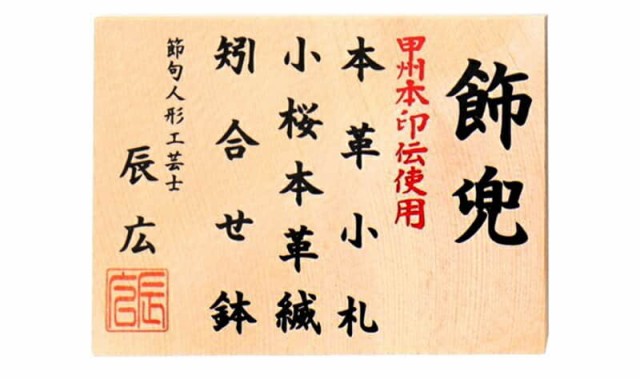 飾兜
甲州本印伝使用
本革小札
小桜本革縅
矧合せ鉢
節句人形工芸士
辰広
辰広